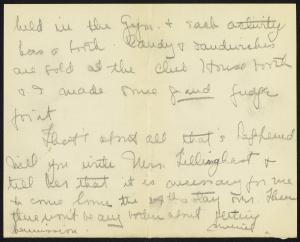 held in the Gym. & each activity
has a booth. Candy & sandwiches
are sold at the Club House booth
& I made some good fudge
for it
That's about all that's happened
Will you write Mrs. Tillinghast &
tell her that it is necessary for me
to come home the day ours. Then
there won't be any bother about getting
permission.